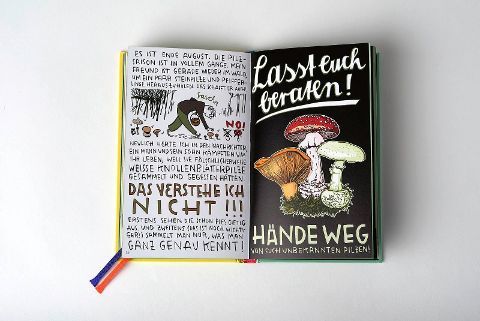 ES IST ENDE AUGUST. DIE PILZ-
SAISON IST IN VOLLEM GANGE. MEIN
FREUND IST GERADE WIEDER IM WALD,
UM EIN PAAR STEINPILZE UND PFIFFER-
LINGE HERAUSZUHOLEN
NO!
NEULICH HÖRTE ICH IN DEN NACHRICHTEN
EIN MANN UND SEIN SOHN KÄMPFTEN UM
IHR LEBEN, WEIL SIE FÄLSCHLICHERWEISE
WEISSE KNOLLENBLÄTTERPILZE
GESAMMELT UND GEGESSEN HATTEN.
DAS VERSTEHE ICH
NICHT!!!
ERSTENS SEHEN DIE SCHON FIES GIFTIG
AUS. UND ZWEITENS
SAMMELT MAN NUR, WAS MAN
GANZ GENAU KENNT!
Lasst euch
beraten!
HÄNDE WEG
VON EUCH UNBEKANNTEN PILZEN!